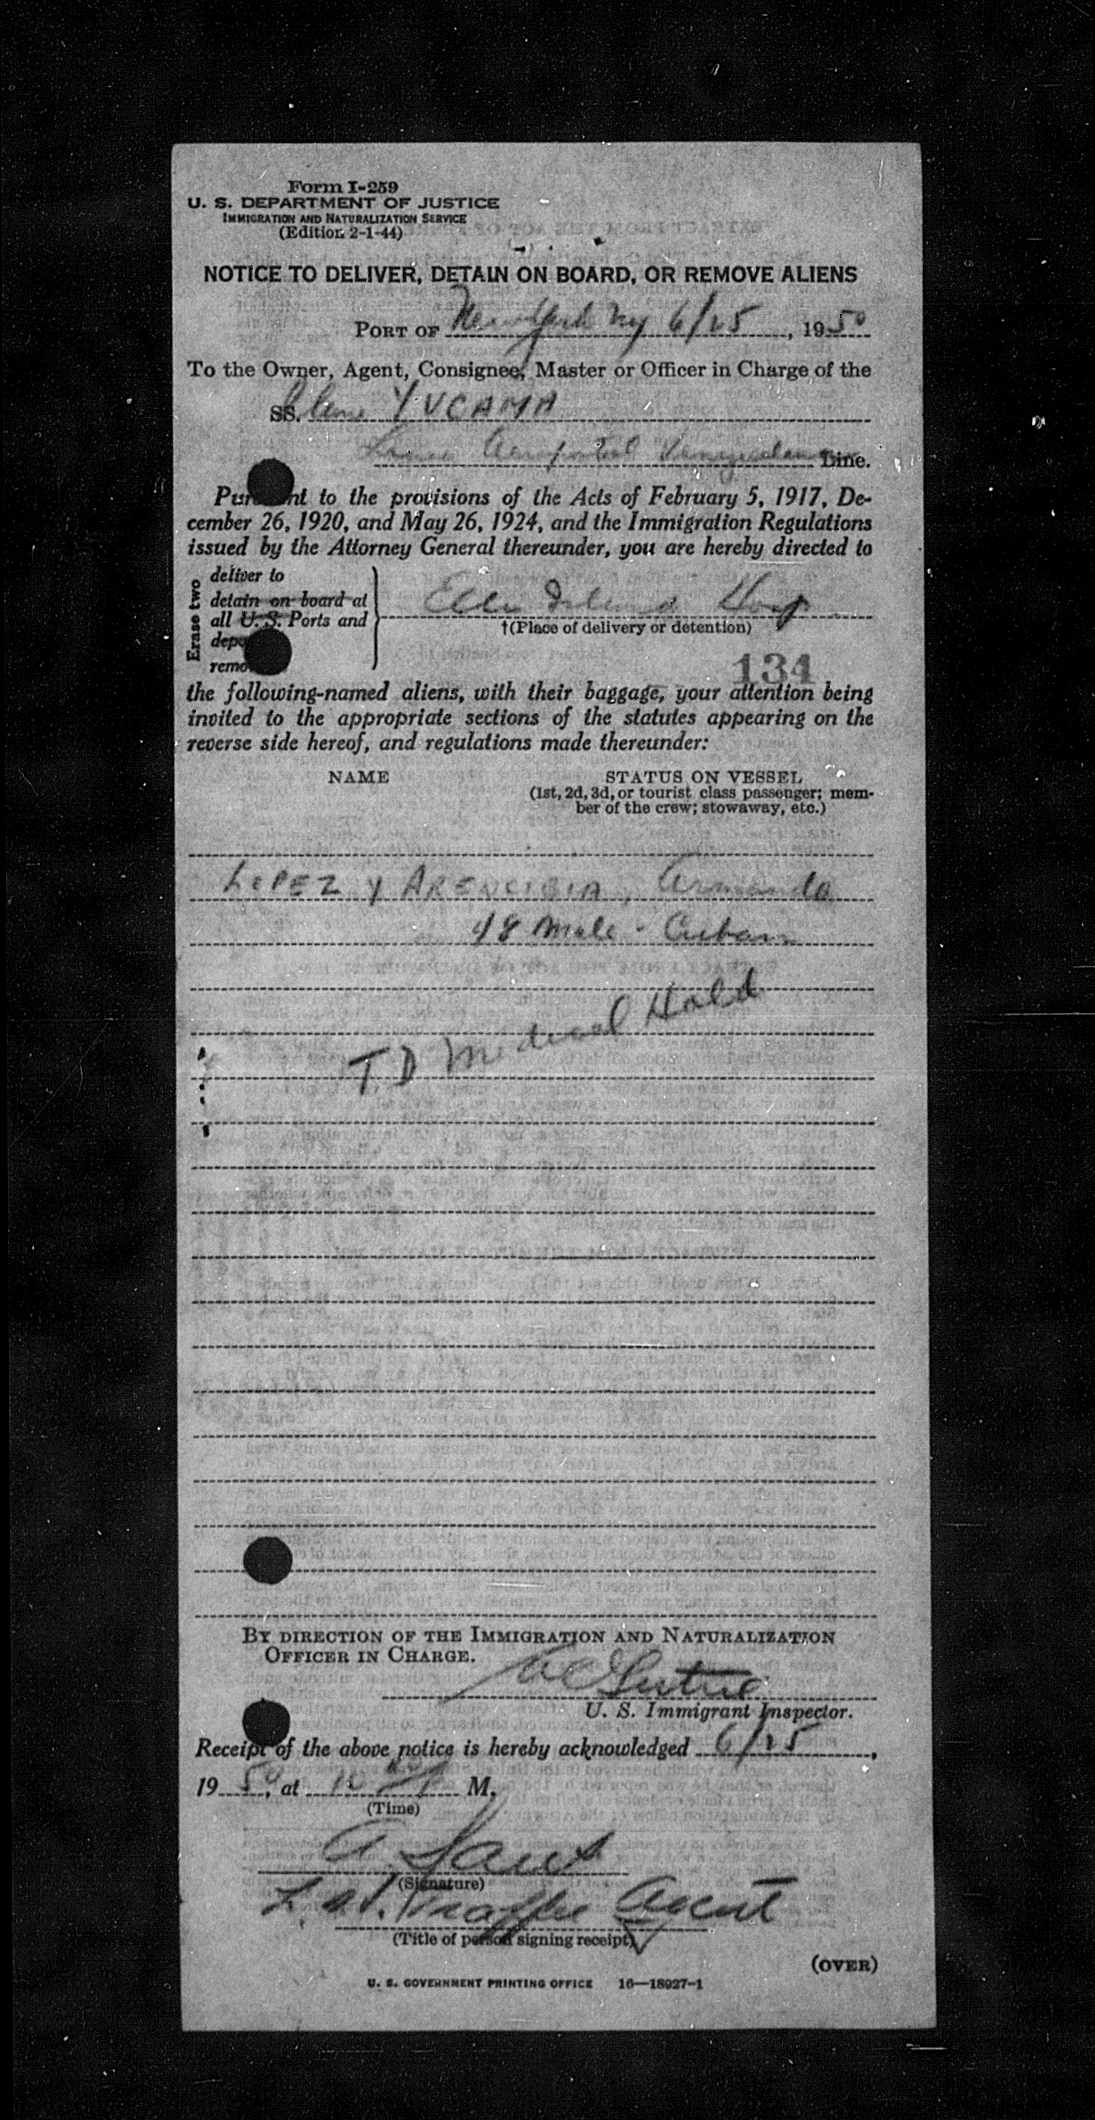 Form I-259
U. S. DEPARTMENT OF JUSTICE
IMMIGRATION AND NATURALIZATION SERVICE
(Edition 2-1-44)
NOTICE TO DELIVER, DETAIN ON BOARD, OR REMOVE ALIENS
PORT OF New York NY 6/25, 1950
To the Owner, Agent, Consignee, Master or Officer in Charge of the
SS. Plane YVCAMA
Linea Aeropostal Venezolana Line.
Pursuant to the provisions of the Acts of February 5, 1917, De-
cember 26, 1920, and May 26, 1924, and the Immigration Regulations
issued by the Attorney General thereunder, you are hereby directed to
Erase two
deliver to
detain on board at
all U. S. Ports and
remo
Ellis Island Hosp
†(Place of delivery or detention)
134
the following-named aliens, with their baggage, your attention being
invited to the appropriate sections of the statutes appearing on the
reverse side hereof, and regulations made thereunder:
NAME STATUS ON VESSEL
(1st, 2d, 3d, or tourist class passenger; mem-
ber of the crew; stowaway, etc.)
LOPEZ y ARENCIBIA, Armando
48 Male - Cuban
T D Medical Hold
BY DIRECTION OF THE IMMIGRATION AND NATURALIZATION
OFFICER IN CHARGE.
U. S. Immigrant Inspector.
Receipt of the above notice is hereby acknowledged 6/25,
1950, at M.
(Time)
A.
(Signature)
L.A.V. Traffic Agent
(Title of person signing receipt)
(OVER)
U. S. GOVERNMENT PRINTING OFFICE 16—18927-1